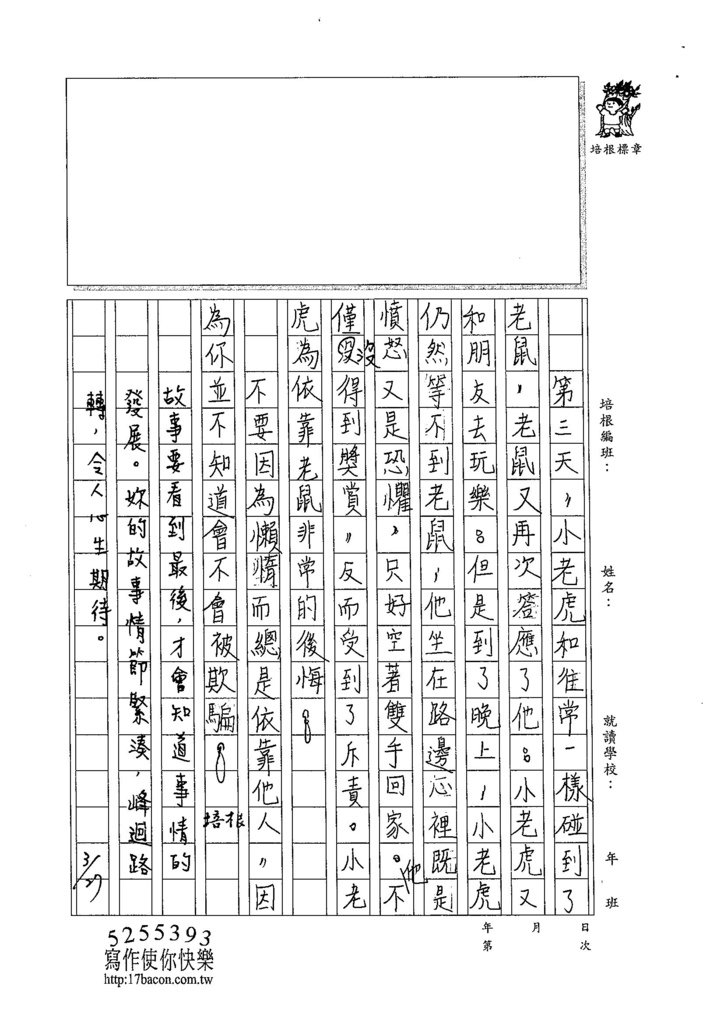 培根標章
培根編班：
姓名：
就讀學校：
年 班
日次
月
年第
第三天，小老虎和往常一樣碰到了
老鼠，老鼠又再次答應了他。小老虎又
和朋友去玩樂。但是到了晚上，小老虎
仍然等不到老鼠，他坐在路邊心裡既是
憤怒又是恐懼，只好空著雙手回家。他不
僅沒得到獎賞，反而受到了斥責。小老
虎為依靠老鼠非常的後悔。
不要因為懶惰而總是依靠他人，因
為你並不知道會不會被欺騙。
培根
故事要看到最後，才會知道事情的
發展。妳的故事情節緊湊，峰迴路
轉，令人心生期待。
3/27
5255393
寫作使你快樂
http:17bacon.com.tw